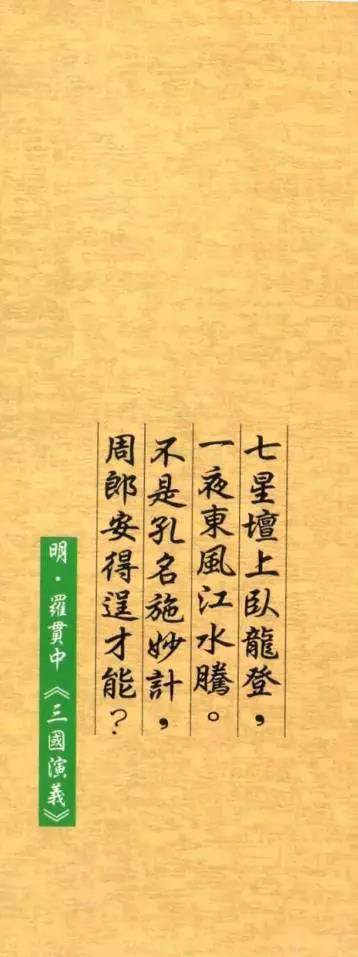 七星壇上臥龍登，
一夜東風江水騰。
不是孔名施妙計，
周郎安得逞才能？
明·羅貫中《三國演義》